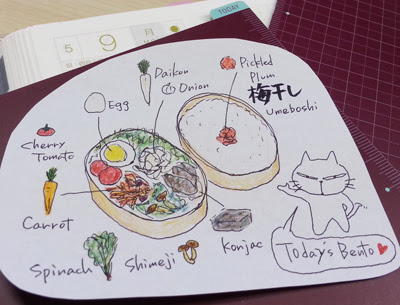 TODAY
5
9
月
Daikon
Onion
Egg
Pickled
Plum
梅干し
Umeboshi
Cherry
Tomato
Carrot
Spinach
Shimeji
Konjac
Today's Bento